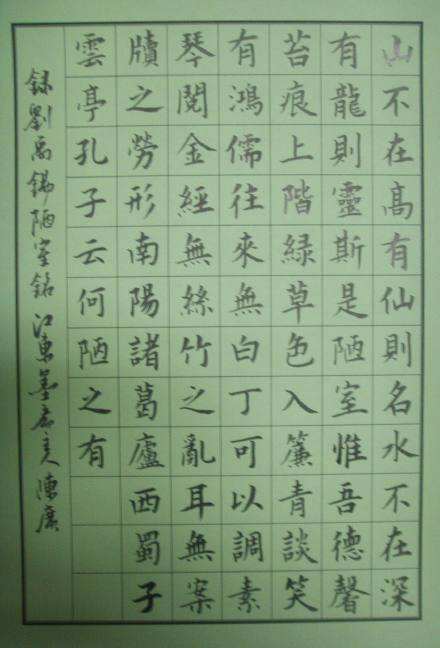 山不在高有仙則名水不在深
有龍則靈斯是陋室惟吾德馨
苔痕上階綠草色入簾青談笑
有鴻儒往來無白丁可以調素
琴閱金經無絲竹之亂耳無案
牘之勞形南陽諸葛廬西蜀子
雲亭孔子云何陋之有
錄劉禹錫陋室銘 江東墨 陳廣